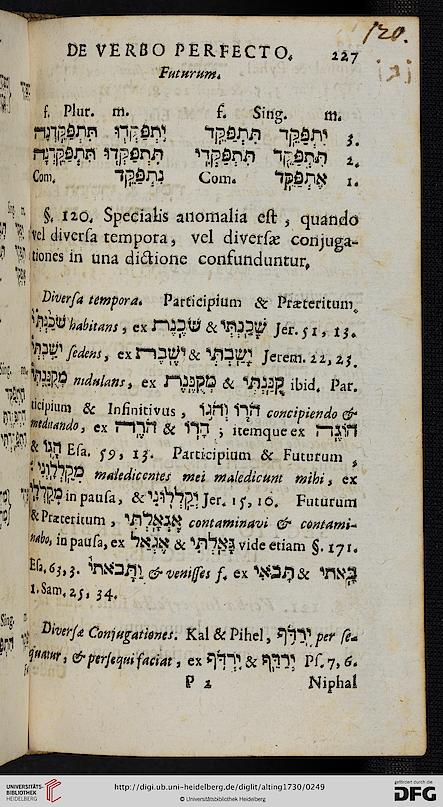 120.
DE VERBO PERFECTO. 227
Futurum.
f. Plur. m. f. Sing. m.
יִתְפַּקֵּד תִּתְפַּקֵּד יִתְפַּקְּדוּ תִּתְפַּקֵּדְנָה 3.
תִּתְפַּקֵּד תִּתְפַּקְּדִי תִּתְפַּקְּדוּ תִּתְפַּקֵּדְנָה 2.
Com. נִתְפַּקֵּד Com. אֶתְפַּקֵּד 1.
§. 120. Specialis anomalia est, quando
vel diversa tempora, vel diversæ conjuga-
tiones in una dictione confunduntur.
Diversa tempora. Participium & Præteritum,
שֹׁכַנְתְּיְ habitans, ex שֹׁכֶנֶת & שָׁכַנְתִּי Jer. 51, 13.
יֹשַׁבְתְּיְ sedens, ex יֹשֶׁבֶת & יָשַׁבְתִּי Jerem. 22, 23.
מְקֻנַּנְתְּיְ nidulans, ex מְקֻנֶּנֶת & קֻנַּנְתִּי ibid. Par-
ticipium & Infinitivus, הֹרוֹ וְהֹגוֹ concipiendo &
meditando, ex הֹרֶה & הָרוֹ; itemque ex הוֹגֶה
& הָגוֹ Esa. 59, 13. Participium & Futurum,
מְקַלְלַוְנִי maledicentes mei maledicunt mihi, ex
מְקַלְלַי in pausa, & יְקַלְלוּנִי Jer. 15, 10. Futurum
& Præteritum, אֶגְאָלְתִּי contaminavi & contami-
nabo, in pausa, ex אֶגְאַל & גָּאַלְתִּי vide etiam §. 171.
Esa, 63, 3. וַתָּבֹאתִי & venisses f. ex תָּבֹאִי & בָּאתִי
1. Sam, 25, 34.
Diversæ Conjugationes. Kal & Pihel, יִרַדֹּף per se-
quatur, & persequi faciat, ex יִרְדֹּף & יְרַדֵּף Ps. 7, 6.
P 2 Niphal
UNIVERSITÄTS-BIBLIOTHEK HEIDELBERG
http://digi.ub.uni-heidelberg.de/diglit/alting1730/0249
© Universitätsbibliothek Heidelberg
gefördert durch die
DFG